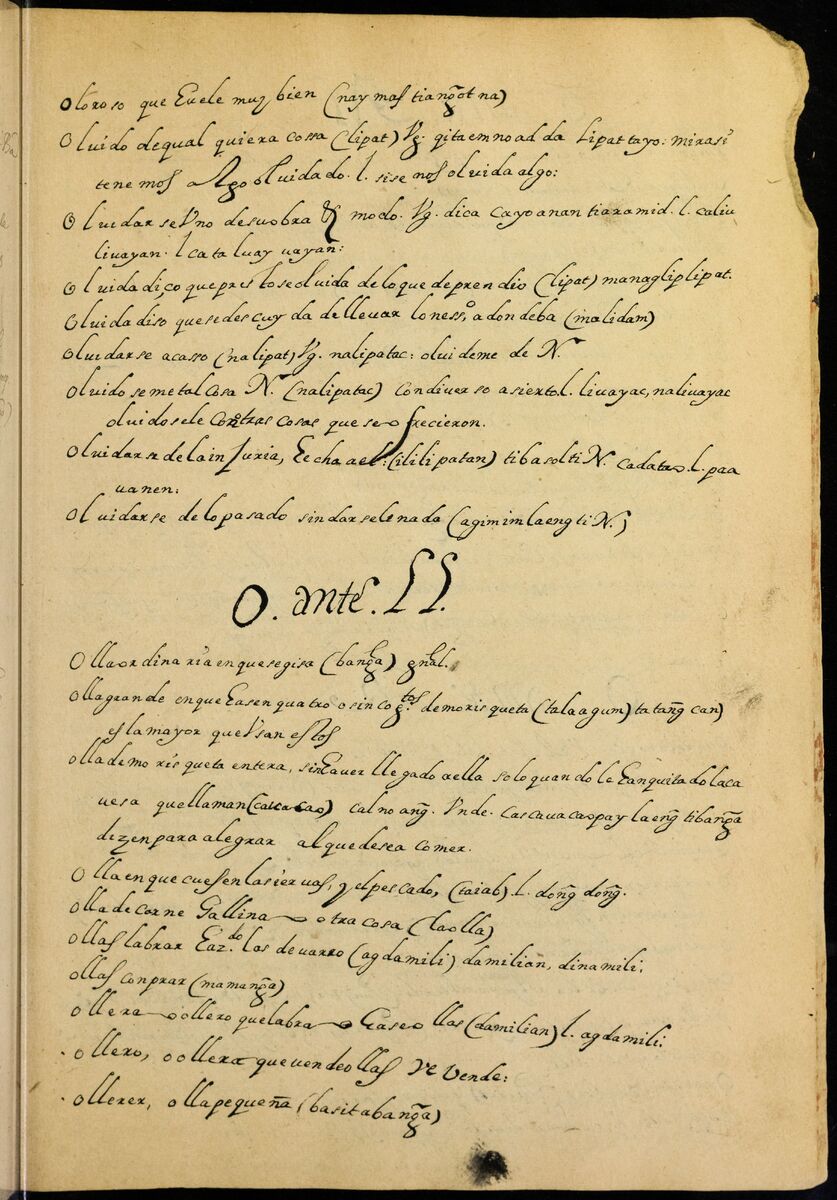 Oloroso que Euele muy bien (nay mas tiang̃ot na)
Oluido dequal quiera cossa (lipat) Vg: gita em no ad da Lipat tayo: mirasi
tenemos Algo oluidado. l. sise nos oluida algo:
Oluidarse Vno desuobra modo. Vg. dica cayoanan tiaramid. l. caliu
liuayan. l cata luay uayañ:
Oluidadiço queprestose oluida deloque deprendio (lipat) managliplipat.
Oluidadiso quesedescuyda dellevar loness.º adondeba (malidam)
Oluidarse acasso (nalipat) Vg. nalipatac: oluideme de N.
Oluidosemetalcosa N. (nalipatac) condiuerso asierto. l. liuayac, naliuayac
oluidosele Conotras cosas que se ofrecieron.
Oluidarse dela inJuria, Eecha ael: (ililipatan) tibasol ti N. cadatao. l. paa
uanen:
Oluidarse delopasado sindarselenada (agimimlaeng ti N.)
O. ante. LL.
Olla ordinaria enquesegisa (bang̃a) gñal.
Olla grande enque Easen quatro o sinco g.tos demorisqueta (talaagum) tatang̃can)
es la mayor que Vsan estos
olla demorisqueta entera, sin Eauer llegado aella solo quando le Eanquitado laca
uesa quellaman (cascacao) calnoang̃. Vnde. cascauacaopay laeng̃ tibang̃a
dizen para alegrar alquedesea comer.
Olla enque cuesen las ieruas, y elpescado, (taiab) l. dong̃dong̃.
olla de corne Gallina o otra cosa (laolla)
ollas labrar Eaz.do las deuarro (agdamili) damilian, dinamili:
ollas conprar (mamang̃a)
ollera o ollero quelabra o Easeollas (damilian) l. agdamili:
ollero, o ollera queuendeollas Ve Vende:
ollerer, ollapequeña (basitabang̃a)